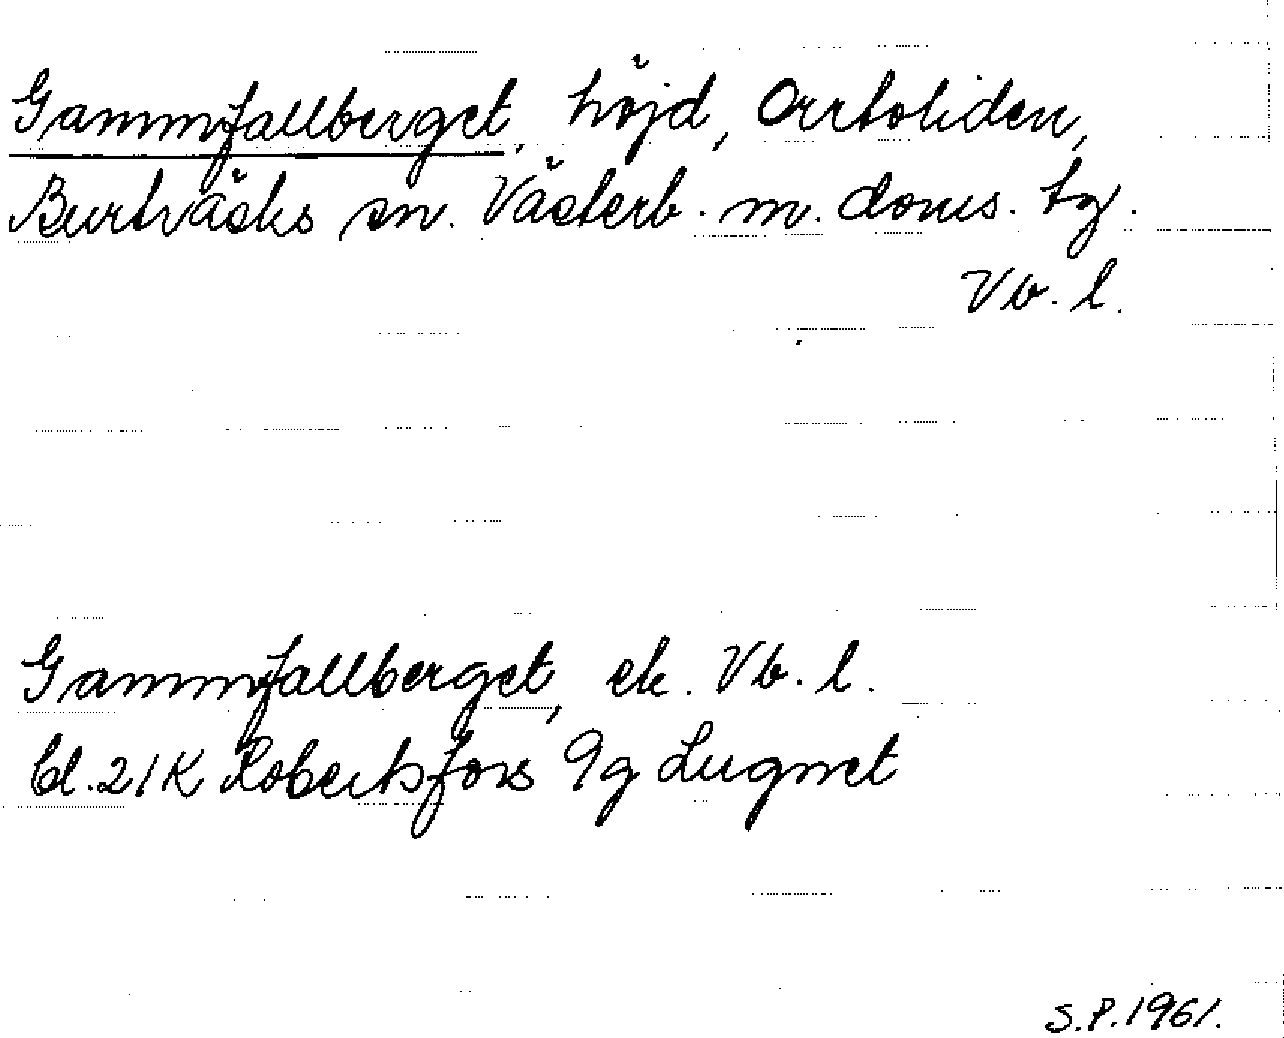 Gammfallberget, höjd, Orrboliden,
Burträsks sn. Västerb. m. doms. tg.
Vb. l.
Gammfallberget, ek. Vb. l.
bl. 21K Robertsfors 9g Lugnet
S.P. 1961.